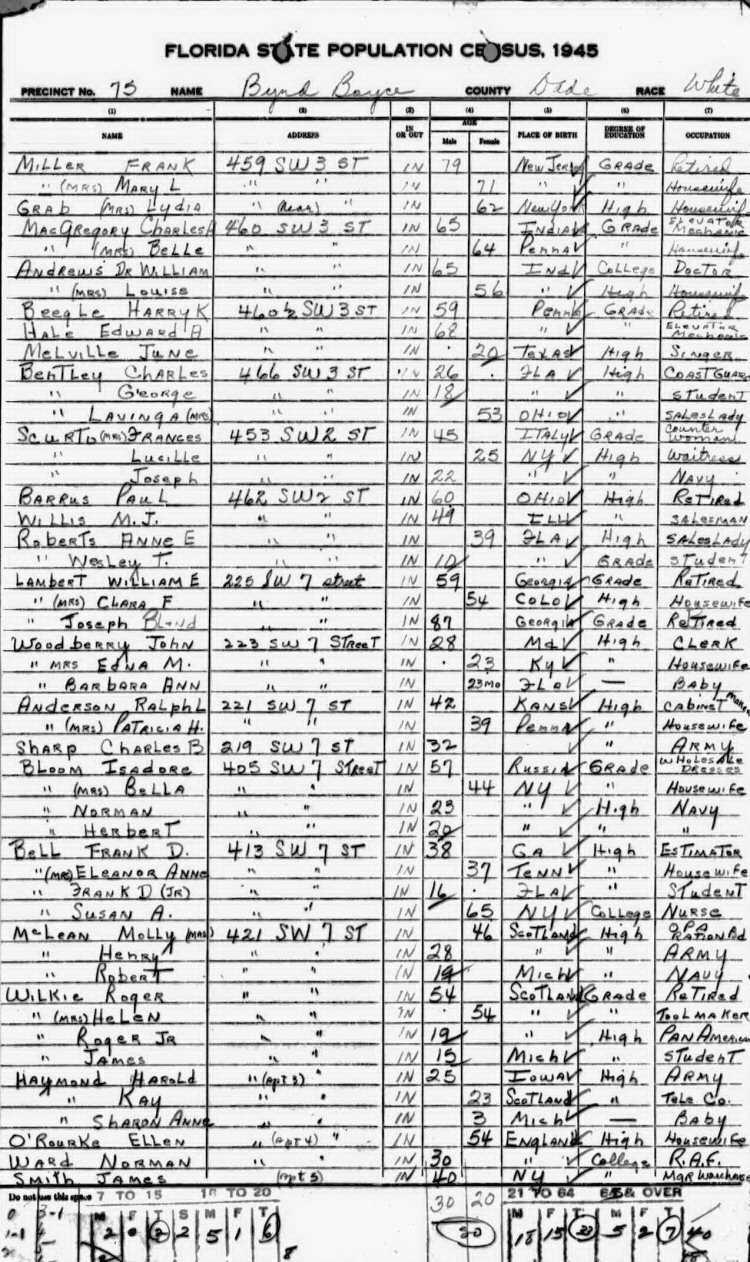 FLORIDA STATE POPULATION CENSUS, 1945
PRECINCT No. 75 NAME Byrd Boyce COUNTY Dade RACE White
(1) (2) (3) (4) (5) (6) (7)
NAME ADDRESS IN OR OUT AGE Male Female PLACE OF BIRTH DEGREE OF EDUCATION OCCUPATION
MILLER FRANK 459 SW 3 ST IN 79 New Jersey GRADE Retired
" (MRS) MARY L " " IN 71 " " Housewife
GRAB (MRS) Lydia " (Rear) " IN 62 New York High Housewife
MacGregory Charles H 460 SW 3 ST IN 65 Indian GRADE ELEVATOR Mechanic
" (MRS) BELLE " " IN 64 Penna " Housewife
ANDREWS DR WILLIAM " " IN 65 Ind College Doctor
" (MRS) LOUISE " " IN 56 " High Housewife
BEEGLE HARRY K 460½ SW 3 ST IN 59 Penn GRADE Retired
HALE EDWARD A " " IN 68 " " ELEVATOR Mechanic
MELVILLE JUNE " " IN 20 TEXAS High SINGER
BENTLEY CHARLES 466 SW 3 ST IN 26 FLA High COAST GUARD
" George " " IN 18 " " STUDENT
" LAVINGA (MRS) " " IN 53 OHIO " SALESLADY
SCURTO (MRS) FRANCES 453 SW 2 ST IN 45 ITALY GRADE Counter Woman
" Lucille " " IN 25 NY High Waitress
" Joseph " " IN 22 " " NAVY
BARRUS PAUL 462 SW 2 ST IN 60 OHIO High RETIRED
WILLIS M.J. " " IN 49 ILL " SALESMAN
ROBERTS ANNE E " " IN 39 FLA High SALESLADY
" WESLEY T. " " IN 10 " GRADE STUDENT
LAMBERT WILLIAM E 225 SW 7 street IN 59 GEORGIA GRADE RETIRED
" (MRS) CLARA F " " IN 54 COLO High Housewife
" JOSEPH Bland " " IN 87 GEORGIA GRADE Retired
WOODBERRY JOHN 223 SW 7 STREET IN 28 Md High CLERK
" MRS EDNA M. " " IN 23 Ky " Housewife
" BARBARA ANN " " IN 23mo FLA — BABY
ANDERSON RALPH L 221 SW 7 ST IN 42 KANS High CABINET Maker
" (MRS) PATRICIA H. " " IN 39 Penna " Housewife
SHARP CHARLES B 219 SW 7 ST IN 32 " ARMY
BLOOM ISADORE 405 SW 7 STREET IN 57 RUSSIA GRADE WHOLESALE DRESSES
" (MRS) BELLA " " IN 44 NY " Housewife
" NORMAN " " IN 23 " High NAVY
" HERBERT " " IN 20 " " "
BELL FRANK D. 413 SW 7 ST IN 38 GA High ESTIMATOR
" (MRS) ELEANOR ANNE " " IN 37 TENN " Housewife
" FRANK D (JR) " " IN 16 FLA " STUDENT
" SUSAN A. " " IN 65 NY College NURSE
McLEAN MOLLY (MRS) 421 SW 7 ST IN 46 Scotland High OPA RATION Bd
" HENRY " " IN 28 " " ARMY
" ROBERT " " IN 19 MICH " NAVY
WILKIE ROGER " " IN 54 SCOTLAND GRADE RETIRED
" (MRS) HELEN " " IN 54 " " TOOLMAKER
" ROGER JR " " IN 19 " High PAN American
" JAMES " " IN 15 MICH " STUDENT
HAYMOND HAROLD " (Apt 3) " IN 25 IOWA High ARMY
" KAY " " IN 23 Scotland " Tele Co.
" SHARON ANNE " " IN 3 Mich — BABY
O'ROURKE ELLEN " (Apt 4) " IN 54 ENGLAND High Housewife
WARD NORMAN " " IN 30 " College R.A.F.
SMITH JAMES (Apt 5) IN 40 NY " Mgr Warehouse
Do not use this space 7 TO 15 18 TO 20 30 20 21 TO 64 65 & OVER
M F T S M F T M F T S F T
2 0 2 2 5 1 6 20 18 15 5 2 7 40
8